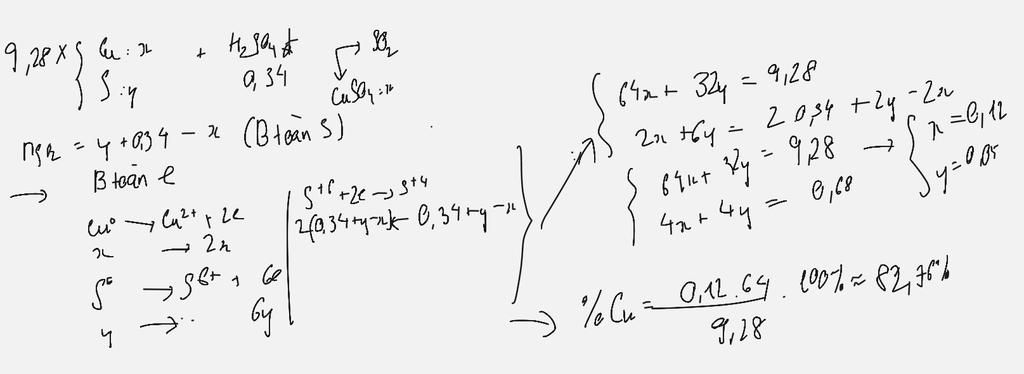 9,28 X { Cu : x + H2SO4 đ → SO2
S : y 0,34 → CuSO4 : x
nSO2 = y + 0,34 - x (B toàn S)
→ B toàn e
Cu0 → Cu2+ + 2e
x → 2x
S0 → S6+ + 6e
y → .. 6y
S+6 + 2e → S+4
2(0,34+y-x) ← 0,34+y-x
64x + 32y = 9,28
2x + 6y = 2 0,34 + 2y - 2x
64x + 32y = 9,28 → { x = 0,12
4x + 4y = 0,68 y = 0,05
→ %Cu = 0,12 . 64 / 9,28 . 100% ≈ 82,76%